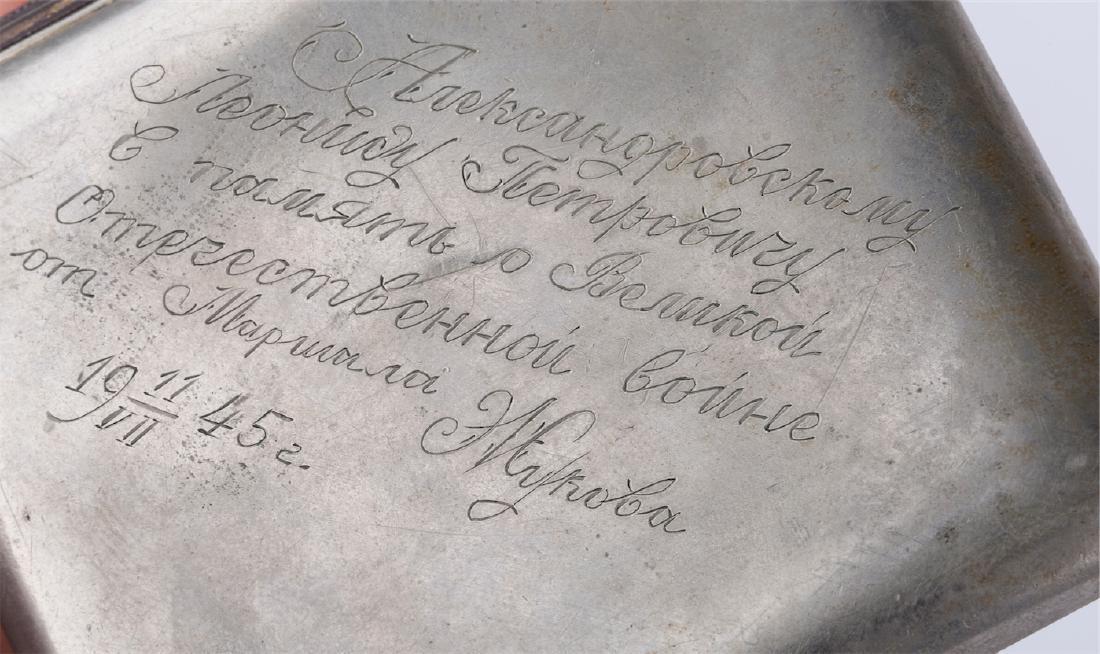 Александровскому
Леониду Петровичу
В память о Великой
Отечественной войне
от Маршала Жукова
19 11/VII 45 г.